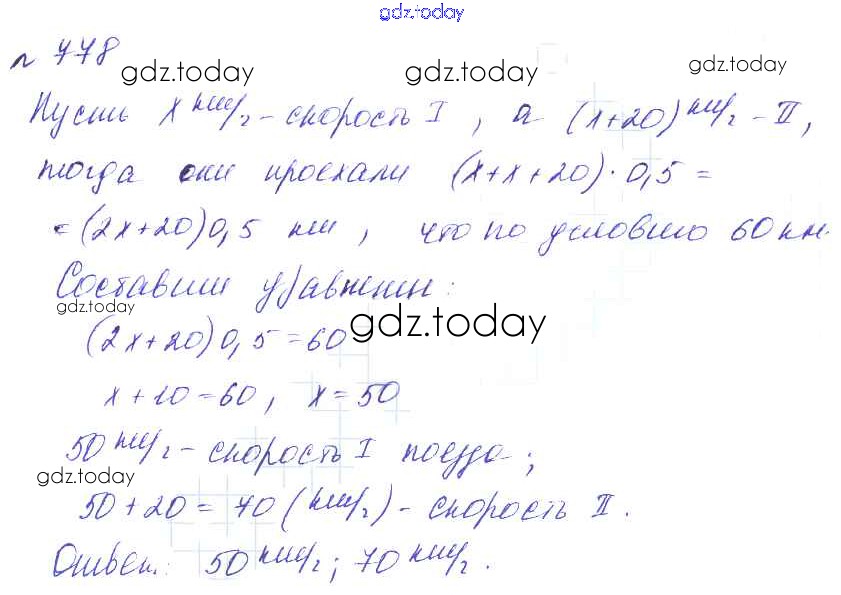 gdz.today
№ 778
gdz.today gdz.today gdz.today
Пусть x км/г - скорость I, а (x+20) км/г - II,
тогда они проехали (x+x+20)·0,5 =
= (2x+20)0,5 км, что по условию 60 км.
Составим уравнение:
gdz.today
(2x+20)0,5=60
gdz.today
x+10=60, x=50
50 км/г - скорость I поезда;
gdz.today
50+20=70 (км/г) - скорость II.
Ответ: 50 км/г; 70 км/г.